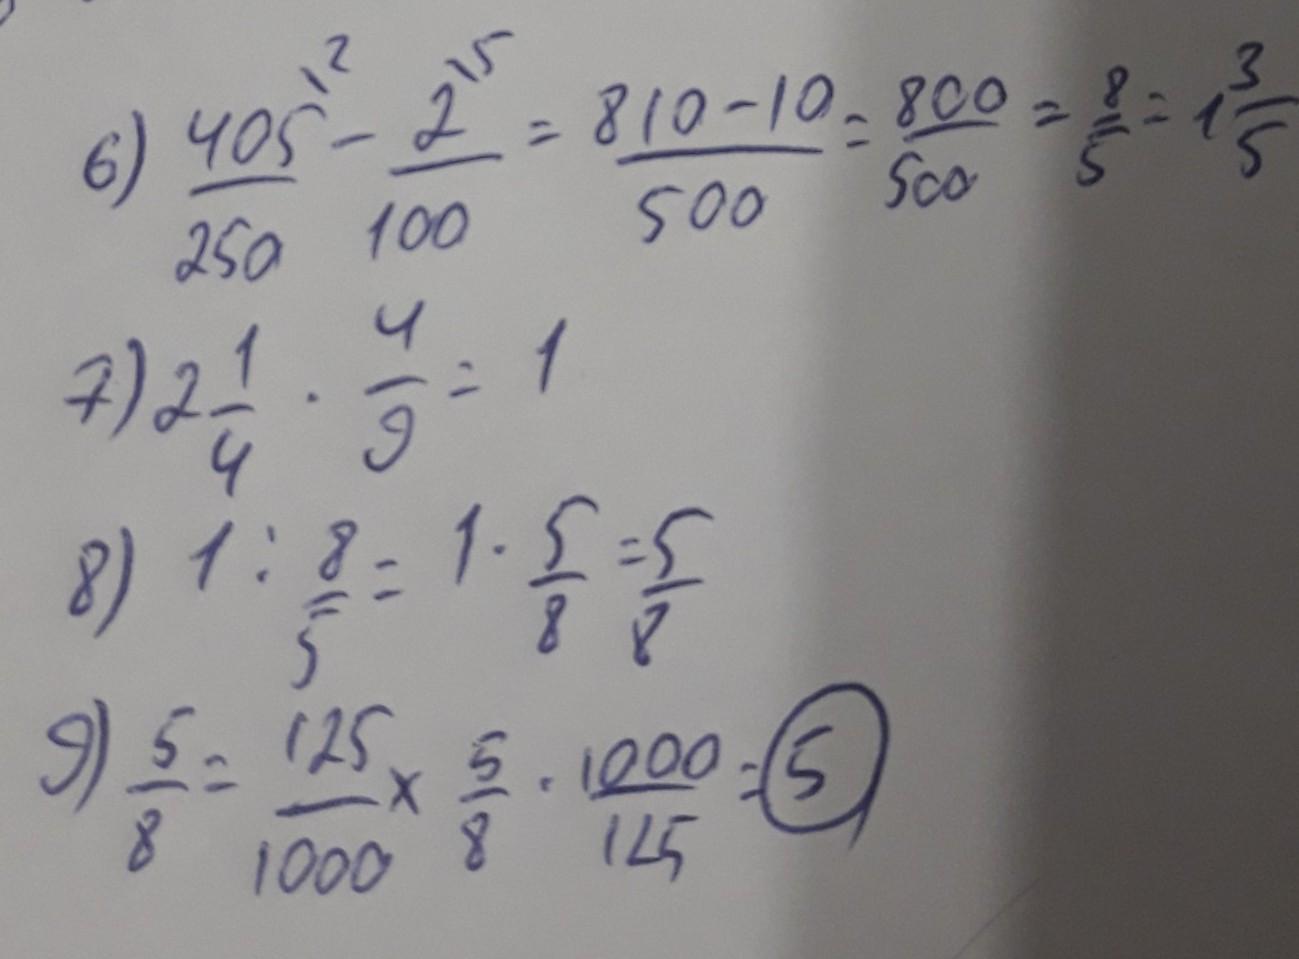 6) 405^{\2}/250 - 2^{\5}/100 = 810-10/500 = 800/500 = 8/5 = 1 3/5
7) 2 1/4 · 4/9 = 1
8) 1 : 8/5 = 1 · 5/8 = 5/8
9) 5/8 = 125/1000 x 5/8 · 1000/125 = 5